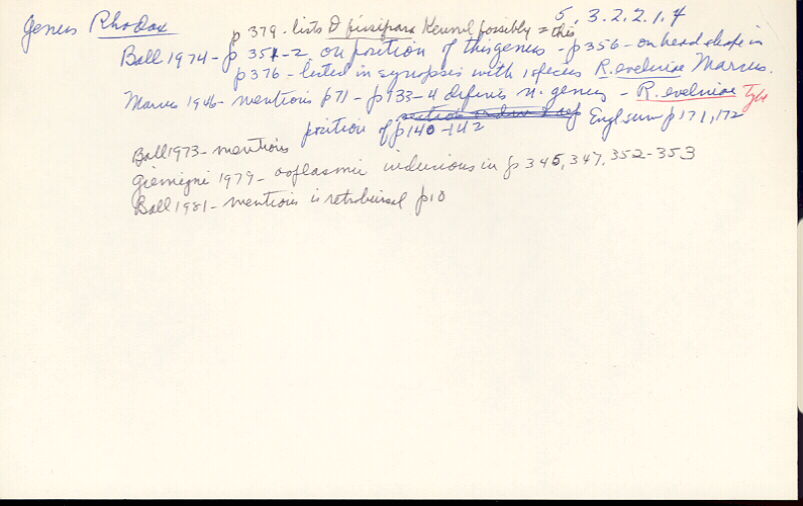 5.3.2.2.1.4
Genus Rhodax p 379 - lists D fissipara Kennel possibly = this
Ball 1974 - p 351-2, on position of this genus - p356 - on head shape in
p 376 - listed in synopsis with 1 species R. evelinae Marcus.
Marcus 1946 - mentions p71 - p133-4 defines n. genus - R. evelinae Type
position of p140-142 Engl sum p171,172
Ball 1973 - mentions
Gremigni 1979 - ooplasmic inclusions in p 345, 347, 352-353
Ball 1981 - mentions is retrobursal p10